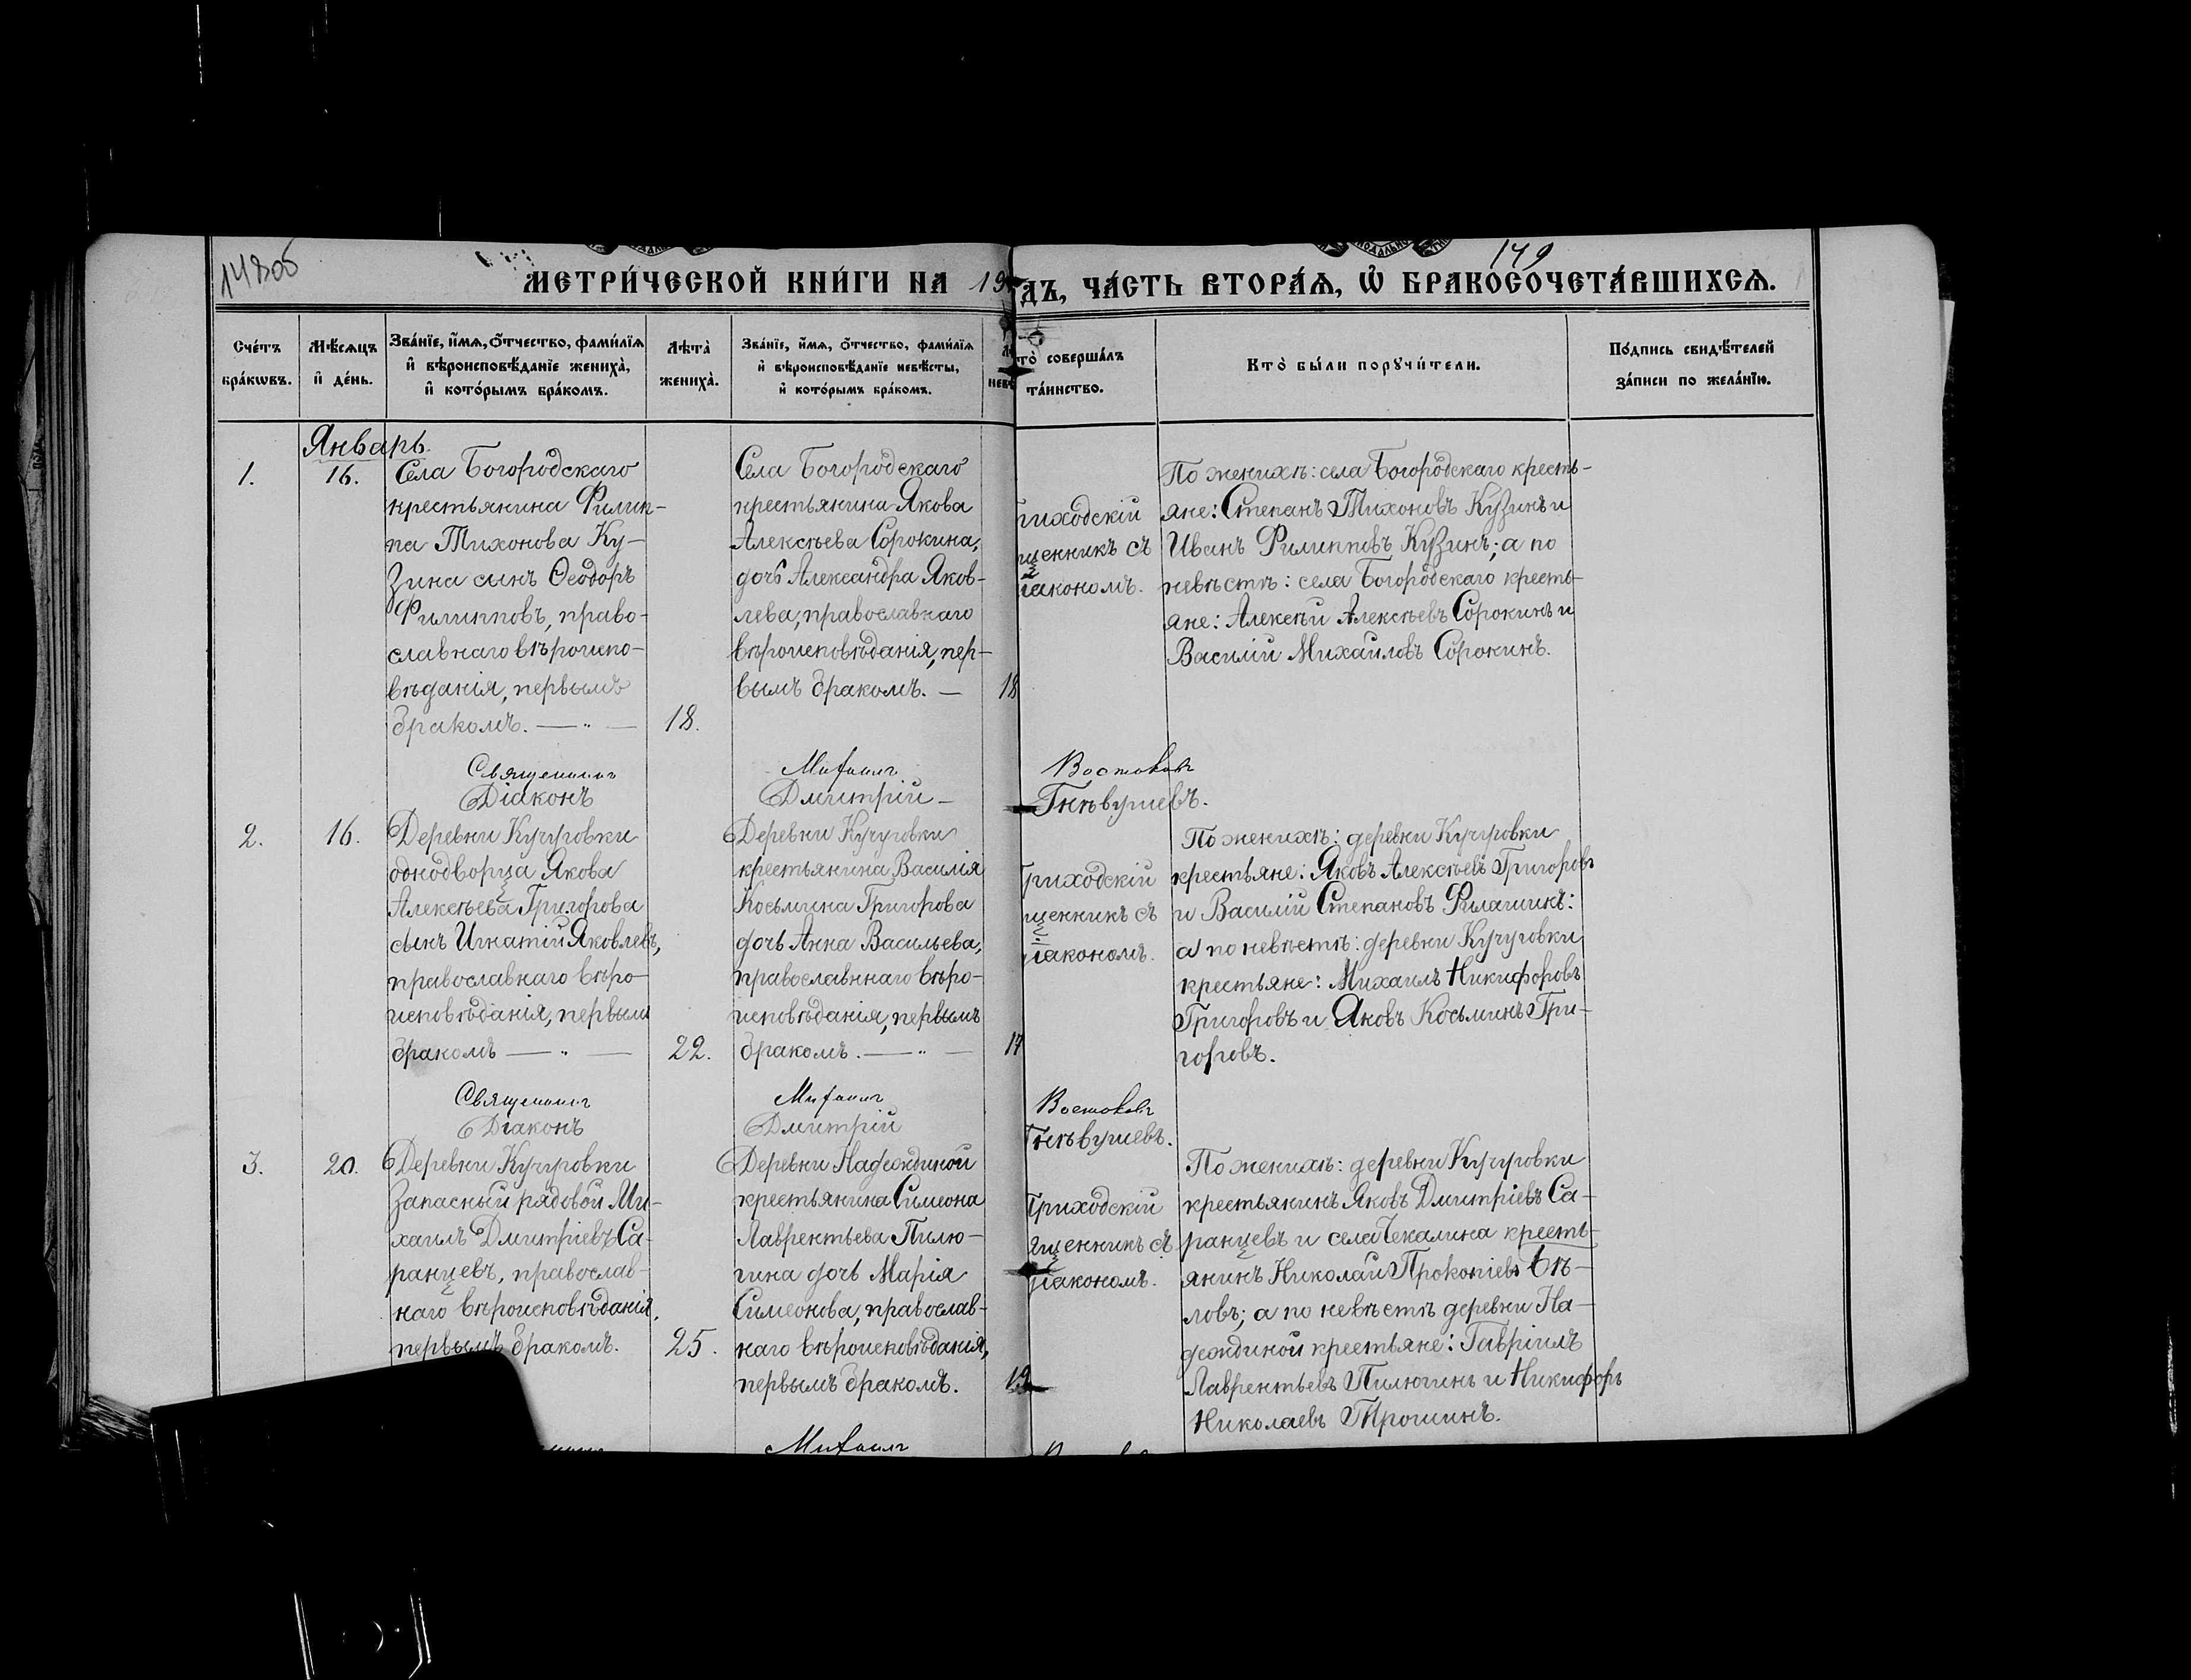 149
МЕТРИ́ЧЕСКОЙ КНИ́ГИ НА 19
ДЪ, ЧА́СТЬ ВТОРА́Ѧ, Ѽ БРАКОСОЧЕТА́ВШИХСѦ.
Сче́тъ бра́кωвъ.
Мѣ́сѧцъ и҆ де́нь.
Зва́нїе, и҆́мѧ, ѻ҆́тчество, фами́лїѧ
и҆ вѣроисповѣ́данїе жениха̀,
и҆ кото́рымъ бра́комъ.
Лѣта̀ жениха̀.
Зва́нїе, и҆́мѧ, ѻ҆́тчество, фами́лїѧ
и҆ вѣроисповѣ́данїе невѣ́сты,
и҆ кото́рымъ бра́комъ.
то̀ соверша́лъ
та́инство.
Кто̀ бы́ли порꙋчи́тели.
По́дпись свидѣ́телей
за́писи по жела́нїю.
Январь.
1.
16.
Села Богородскаго
крестьянина Филип-
па Тихонова Ку-
зина сынъ Ѳеодоръ
Филипповъ, право-
славнаго вѣроиспо-
вѣданія, первымъ
бракомъ. — „ —
18.
Села Богородскаго
крестьянина Якова
Алексѣева Сорокина,
дочь Александра Яков-
лева, православнаго
вѣроисповѣданія, пер-
вымъ бракомъ. —
18
риходскій
щенникъ съ
іакономъ.
По женихѣ: села Богородскаго кресть-
яне: Степанъ Тихоновъ Кузинъ и
Иванъ Филипповъ Кузинъ; а по
невѣстѣ: села Богородскаго кресть-
яне: Алексѣй Алексѣевъ Сорокинъ и
Василій Михайловъ Сорокинъ.
Священникъ Михаилъ Востоковъ
Діаконъ Дмитрій — Гнѣвушевъ.
2.
16.
Деревни Кучуровки
однодворца Якова
Алексѣева Григорова
сынъ Игнатій Яковлевъ,
православнаго вѣро-
исповѣданія, первымъ
бракомъ — „ —
22.
Деревни Кучуровки
крестьянина Василія
Косьмина Григорова
дочь Анна Васильева,
православннаго вѣро-
исповѣданія, первымъ
бракомъ. — „ —
17
Приходскій
щенникъ съ
іакономъ.
По женихѣ: деревни Кучуровки
крестьяне: Яковъ Алексѣевъ Григоровъ
и Василій Степановъ Филашинъ:
а по невѣстѣ: деревни Кучуровки
крестьяне: Михаилъ Никифоровъ
Григоровъ и Яковъ Косьминъ Гри-
горовъ.
Священникъ Михаилъ Востоковъ
Діаконъ Дмитрій Гнѣвушевъ.
3.
20.
Деревни Кучуровки
запасный рядовой Ми-
хаилъ Дмитріевъ Са-
ранцевъ, православ-
наго вѣроисповѣданія,
первымъ бракомъ.
25.
Деревни Надеждиной
крестьянина Симеона
Лаврентьева Пилю-
гина дочь Марія
Симеонова, православ-
наго вѣроисповѣданія,
первымъ бракомъ.
19
Приходскій
ященникъ съ
іакономъ.
По женихѣ: деревни Кучуровки
крестьянинъ Яковъ Дмитріевъ Са-
ранцевъ и села Чекалина кресть-
янинъ Николай Прокопіевъ Бѣ-
ловъ; а по невѣстѣ деревни На-
деждиной крестьяне: Гавріилъ
Лаврентьевъ Пилюгинъ и Никифоръ
Николаевъ Трошинъ.
Михаилъ